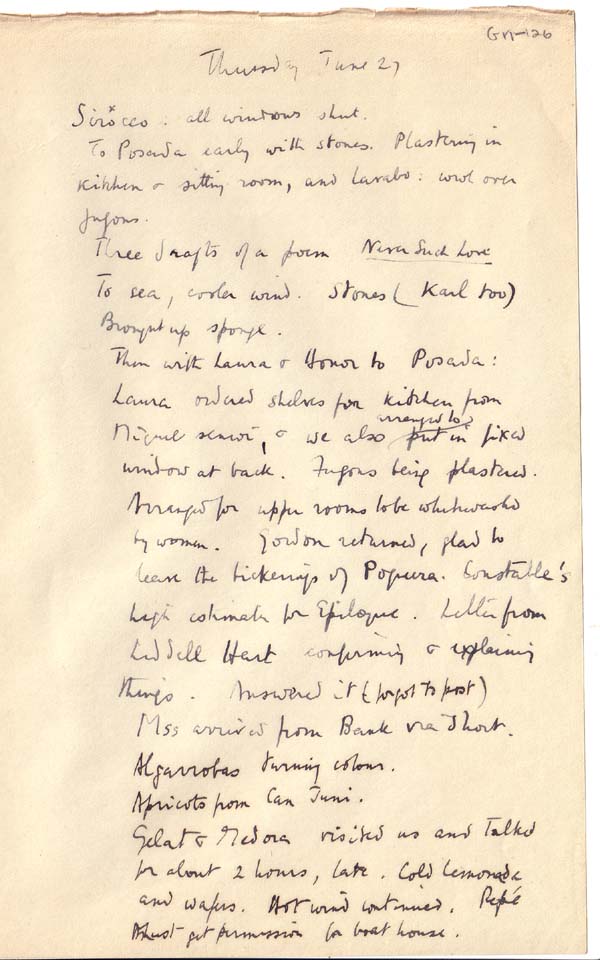 GM-126
Thursday June 27
Sirocco. all windows shut.
To Posada early with stones. Plastering in
kitchen & sitting room, and lavabo: cowl over
fugons.
Three drafts of a poem Never Such Love
To sea, cooler wind. Stones (Karl too)
Brought up sponge.
Then with Laura & Honor to Posada:
Laura ordered shelves for kitchen from
arranged to
Miguel senior, & we also put in fixed
window at back. Fugons being plastered.
Arranged for upper rooms to be whitewashed
by women. Gordon returned, glad to
leave the bickerings of Poguera. Constable's
high estimate for Epilogue. Letter from
Liddell Hart confirming & explaining
things. Answered it (forgot to post)
Mss arrived from Bank via Short.
Algarrobas turning colour.
Apricots from Can Juni.
Gelat & Medora visited us and talked
for about 2 hours, late. Cold lemonade
and wafers. Hot wind continued. Pepé
Must get permission for boat house.